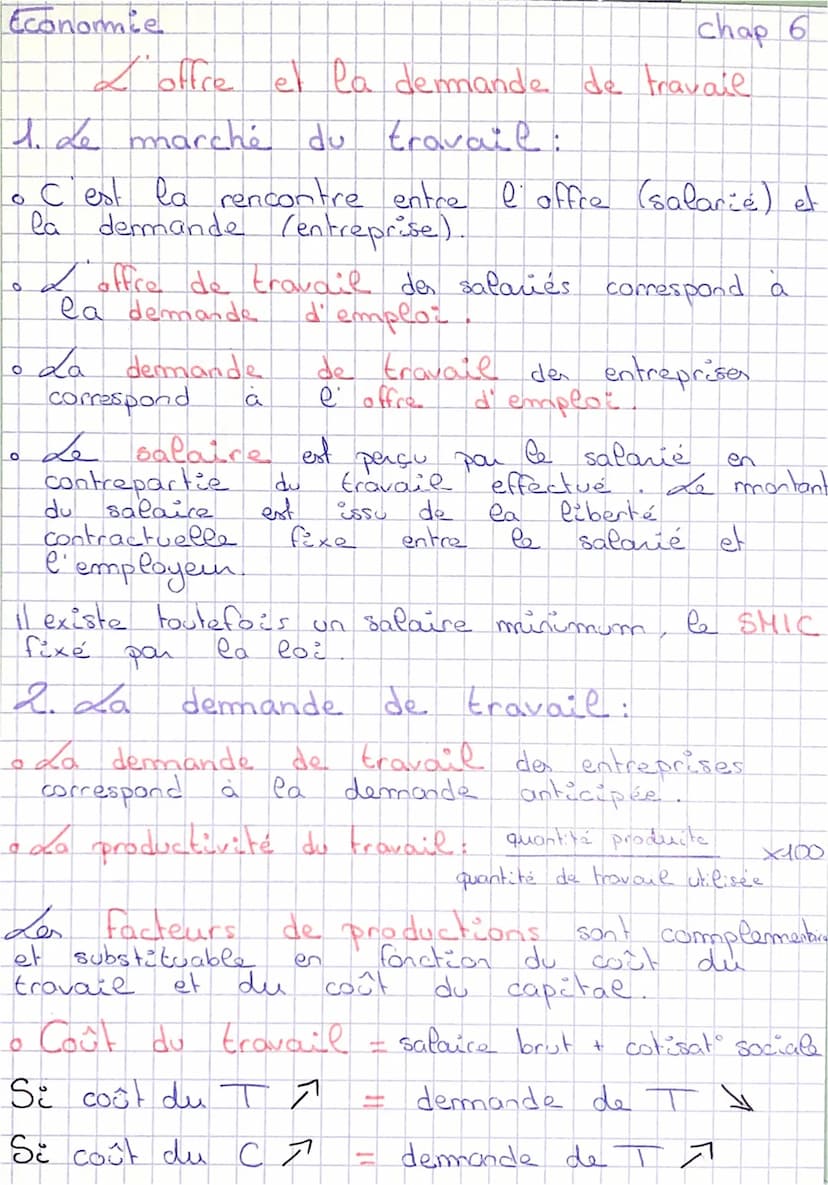 Economie chap 6
L'offre et la demande de travail
1. Le marché du travail :
C'est la rencontre entre l'offre (salarié) et
la demande (entreprise).
L'offre de travail des salariés correspond à
la demande d'emploi.
La demande de travail des entreprises
correspond à l'offre d'emploi.
Le salaire est perçu par le salarié en
contrepartie du travail effectué. Le montant
du salaire est issu de la liberté
contractuelle fixe entre le salarié et
l'employeur.
il existe toutefois un salaire minimum, le SMIC
fixé par la loi.
2. La demande de travail :
La demande de travail des entreprises
correspond à la demande anticipée.
La productivité du travail : quantité produite x100
quantité de travail utilisée
Les facteurs de productions sont complementaire
et substituable en fonction du coût du
travail et du coût du capital.
Coût du travail = salaire brut + cotisat° sociale
Si coût du T ↗ = demande de T ↘
Si coût du C ↗ = demande de T ↗